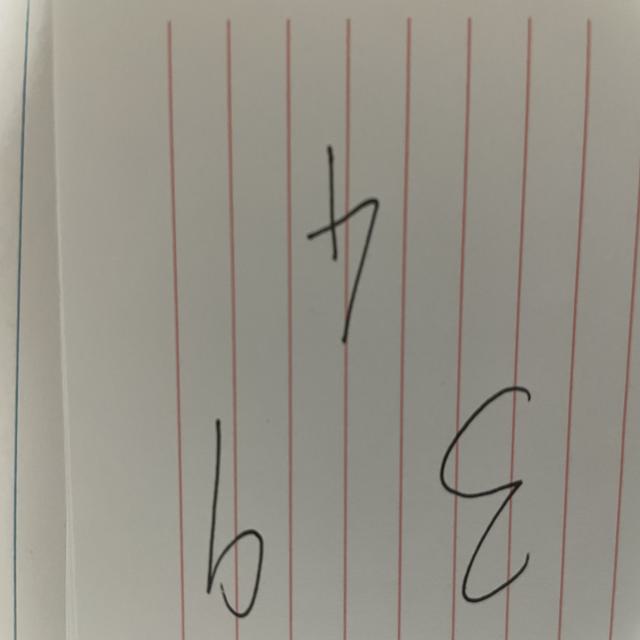 3 9
4